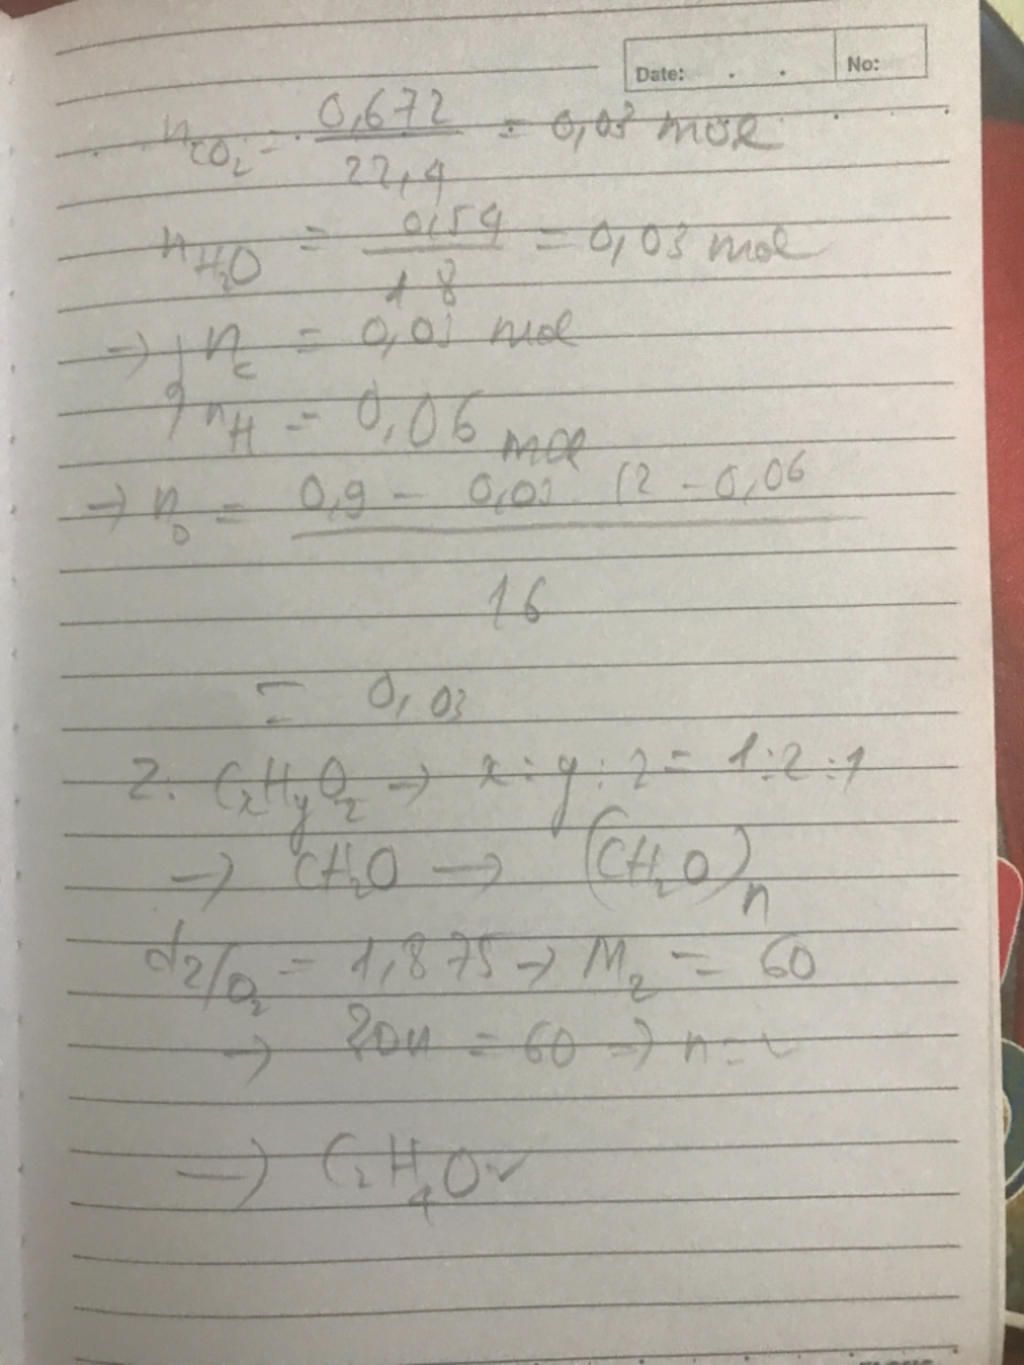 Date: . . No:
n_CO₂ = 0,672 / 22,4 = 0,03 mol
n_H₂O = 0,54 / 18 = 0,03 mol
→ { n_C = 0,03 mol
n_H = 0,06 mol
→ n_O = (0,9 - 0,03 . 12 - 0,06) / 16
= 0,03
Z: CxHyOz → x : y : z = 1 : 2 : 1
→ CH₂O → (CH₂O)n
d z/O₂ = 1,875 → M_z = 60
→ 30n = 60 → n = 2
→ C₂H₄O₂